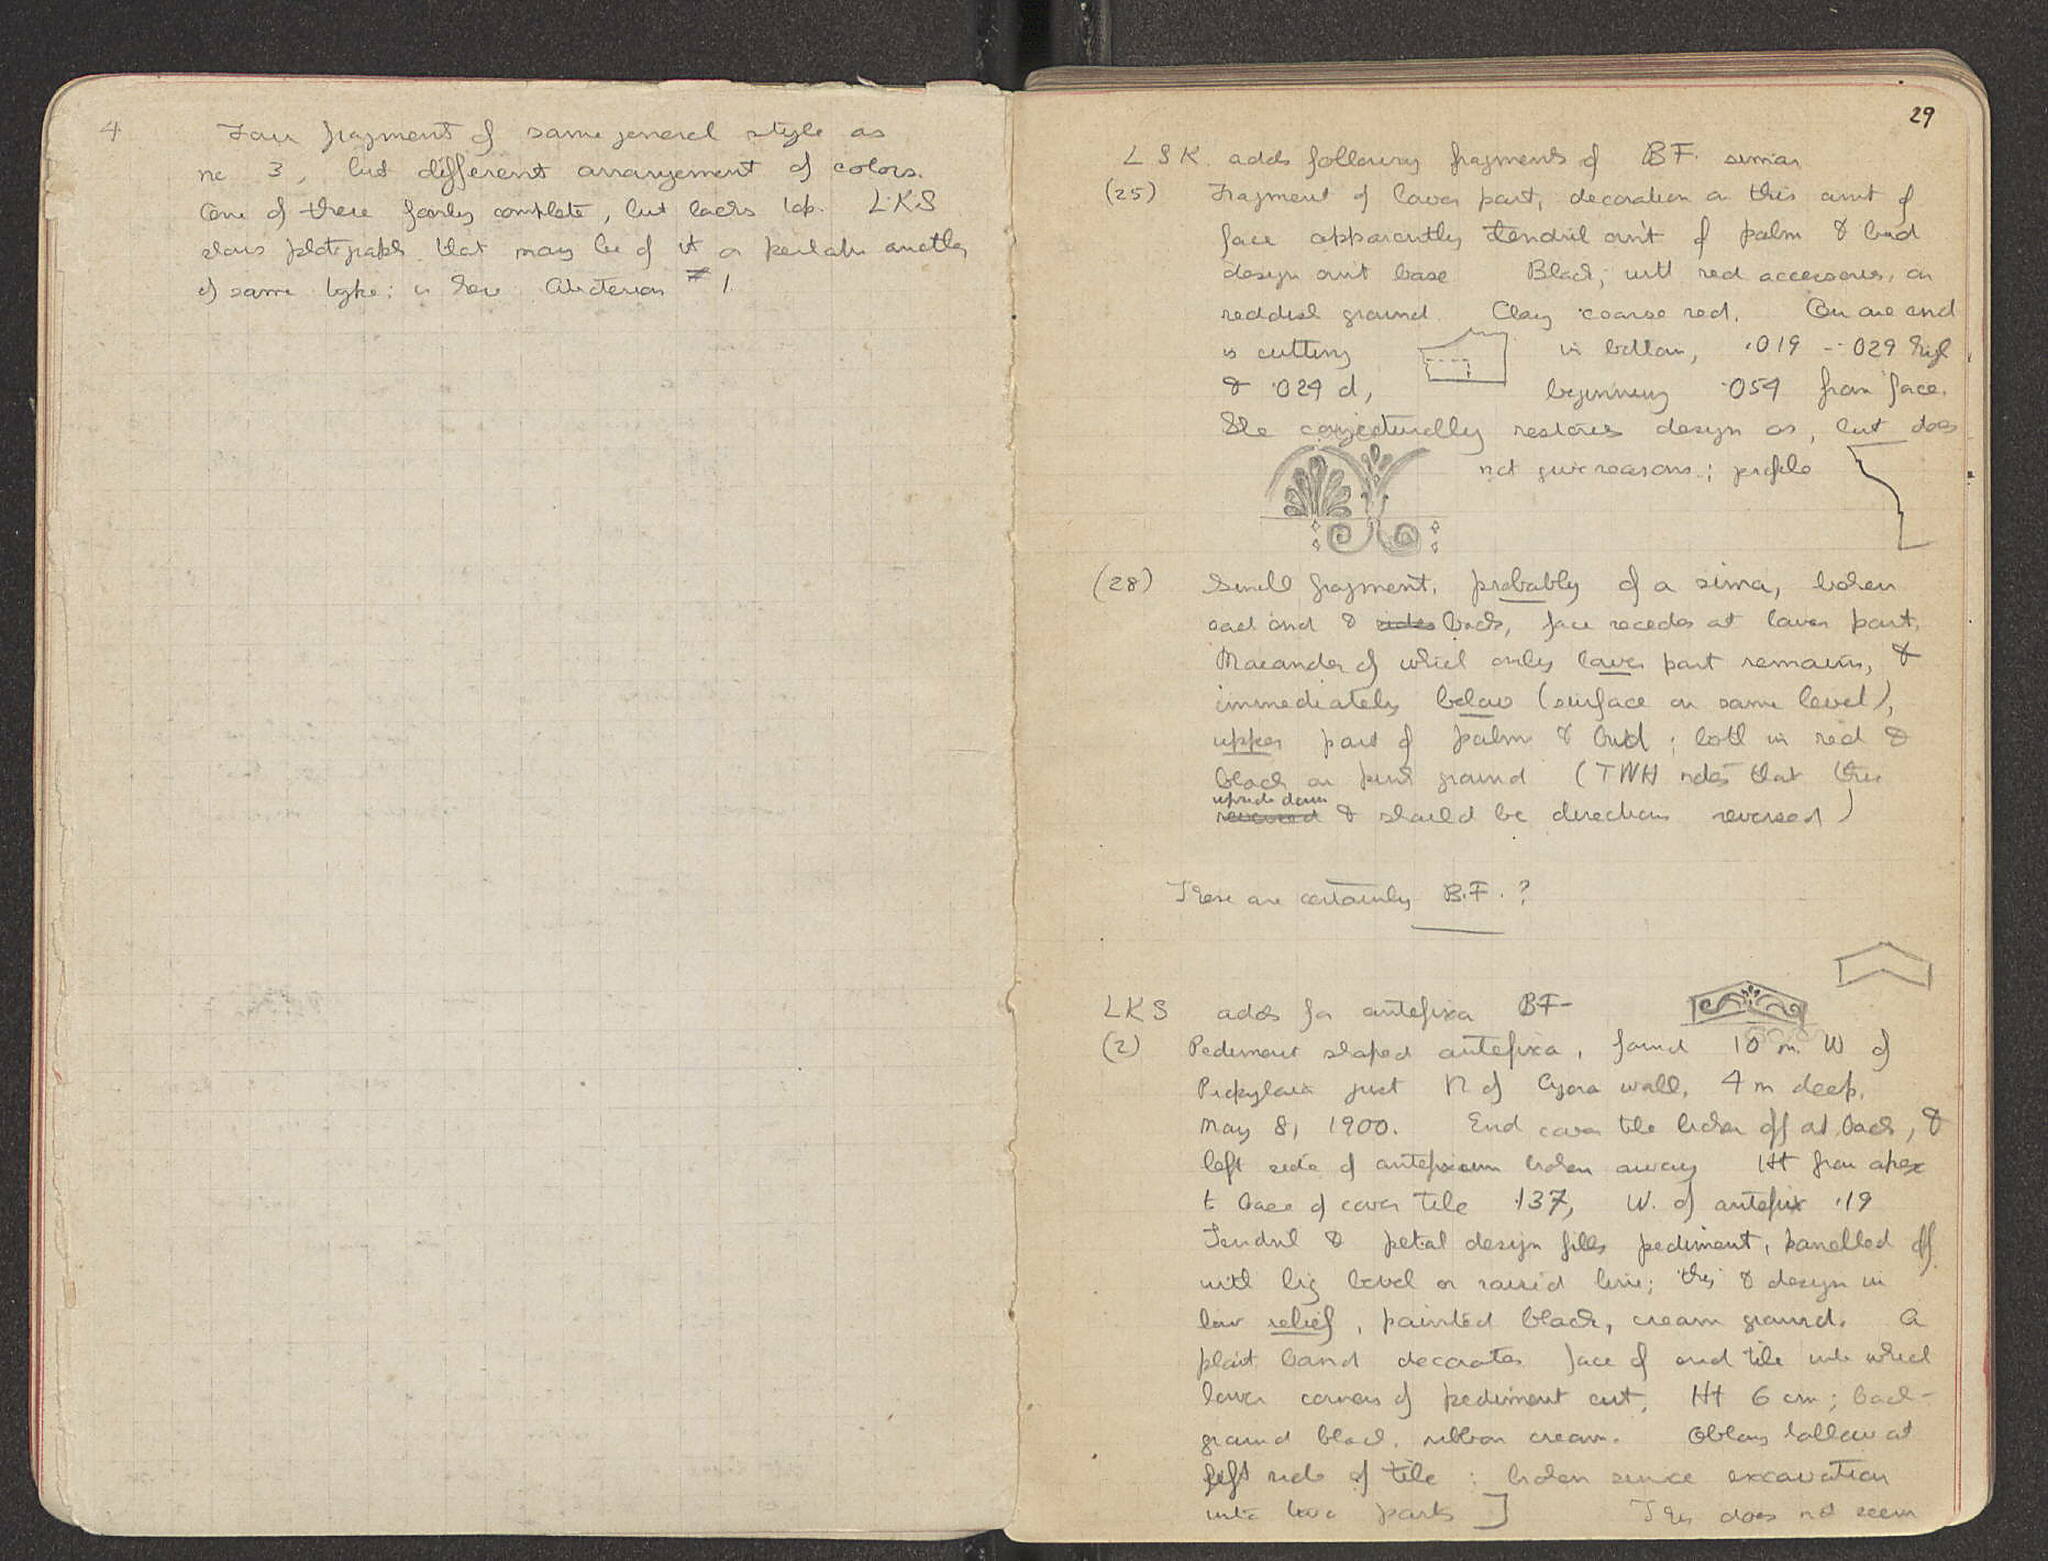 4 Four fragments of same general style as
no 3, but different arrangement of colors.
One of these fairly complete, but lacks top. LKS
shows photograph that may be of it or perhaps another
of same type: is here Akroterion # 1.
29
LSK. adds following fragments of BF. simas
(25) Fragment of lower part, decoration on this amt of
face apparently tendril om't of palm & bud
design om't base Black, with red accessories, on
reddish ground. Clay coarse red. On one end
is cutting in bottom, .019 - .029 high
& .029 d, beginning .054 from face.
She conjecturally restores design as, but does
not give reasons; profile
(28) Small fragment, probably of a sima, broken
each end & sides back, face recedes at lower part.
Maeander of which only lower part remains, &
immediately below (surface on same level),
upper part of palm & bud; both in red &
black on pink ground (TWH notes that this
upside down
reversed & should be directions reversed)
These are certainly B.F.?
LKS adds for antefixa BF-
(2) Pediment shaped antefixa, found 10 m. W of
Propylaea just N of Agora wall, 4 m deep,
May 8, 1900. End cover tile broken off at back, &
left side of antefixum broken away Ht from apex
to base of cover tile .137, W. of antefix .19
Tendril & petal design fills pediment, panelled off
with big bevel or raised line; this & design in
low relief, painted black, cream ground. A
plait band decorates face of end tile into which
lower corners of pediment cut, Ht 6 cm; back-
ground black, ribbon cream. Oblong hollow at
left side of tile: broken since excavation
into two parts] This does not seem